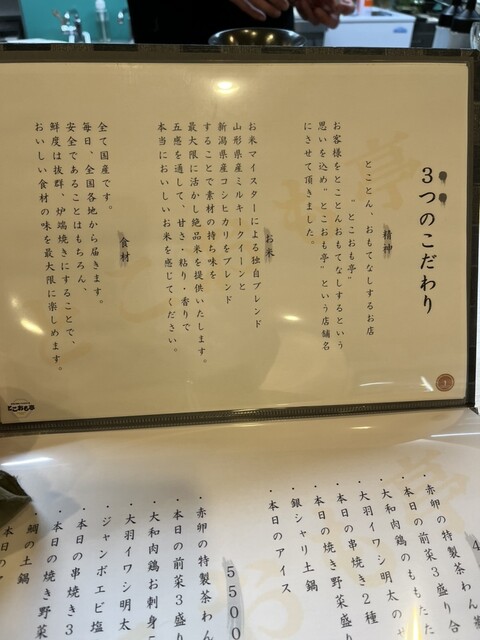 3つのこだわり
精神
とことん、おもてなしするお店
"とこおも亭"
お客様をとことんおもてなしするという
思いを込め"とこおも亭"という店舗名
にさせて頂きました。
お米
お米マイスターによる独自ブレンド
山形県産ミルキークイーンと
新潟県産コシヒカリをブレンド
することで素材の持ち味を
最大限に活かし絶品米を提供いたします。
五感を通して、甘さ・粘り・香りで
本当においしいお米を感じてください。
食材
全て国産です。
毎日、全国各地から届きます。
安全であることはもちろん、
鮮度は抜群、炉端焼きにすることで、
おいしい食材の味を最大限に楽しめます。
とこおも亭
・赤卵の特製茶わん
・本日の前菜3盛り合
・大和肉鶏のももたた
・大羽イワシ明太の
・本日の串焼き2種
・本日の焼き野菜盛
・銀シャリ土鍋
・本日のアイス
5500
・赤卵の特製茶わん
・本日の前菜3盛り
・大和肉鶏お刺身
・大羽イワシ明太
・ジャンボエビ塩
・本日の串焼き3
・本日の焼き野菜
・鯛の土鍋
・本日のア